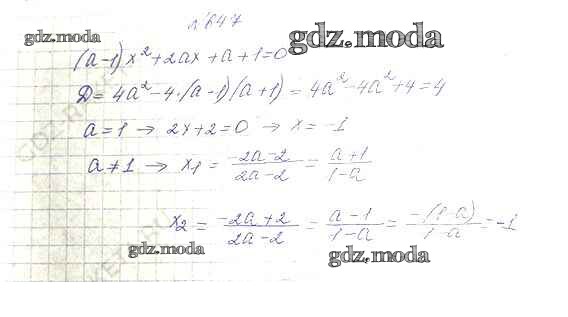 № 647
gdz.moda gdz.moda
(a-1)x²+2ax+a+1=0
D=4a²-4·(a-1)(a+1)=4a²-4a²+4=4
a=1 → 2x+2=0 → x=-1
a≠1 → x₁ = (-2a-2)/(2a-2) = (a+1)/(1-a)
x₂ = (-2a+2)/(2a-2) = (a-1)/(1-a) = (-(1-a))/(1-a) = -1
gdz.moda gdz.moda